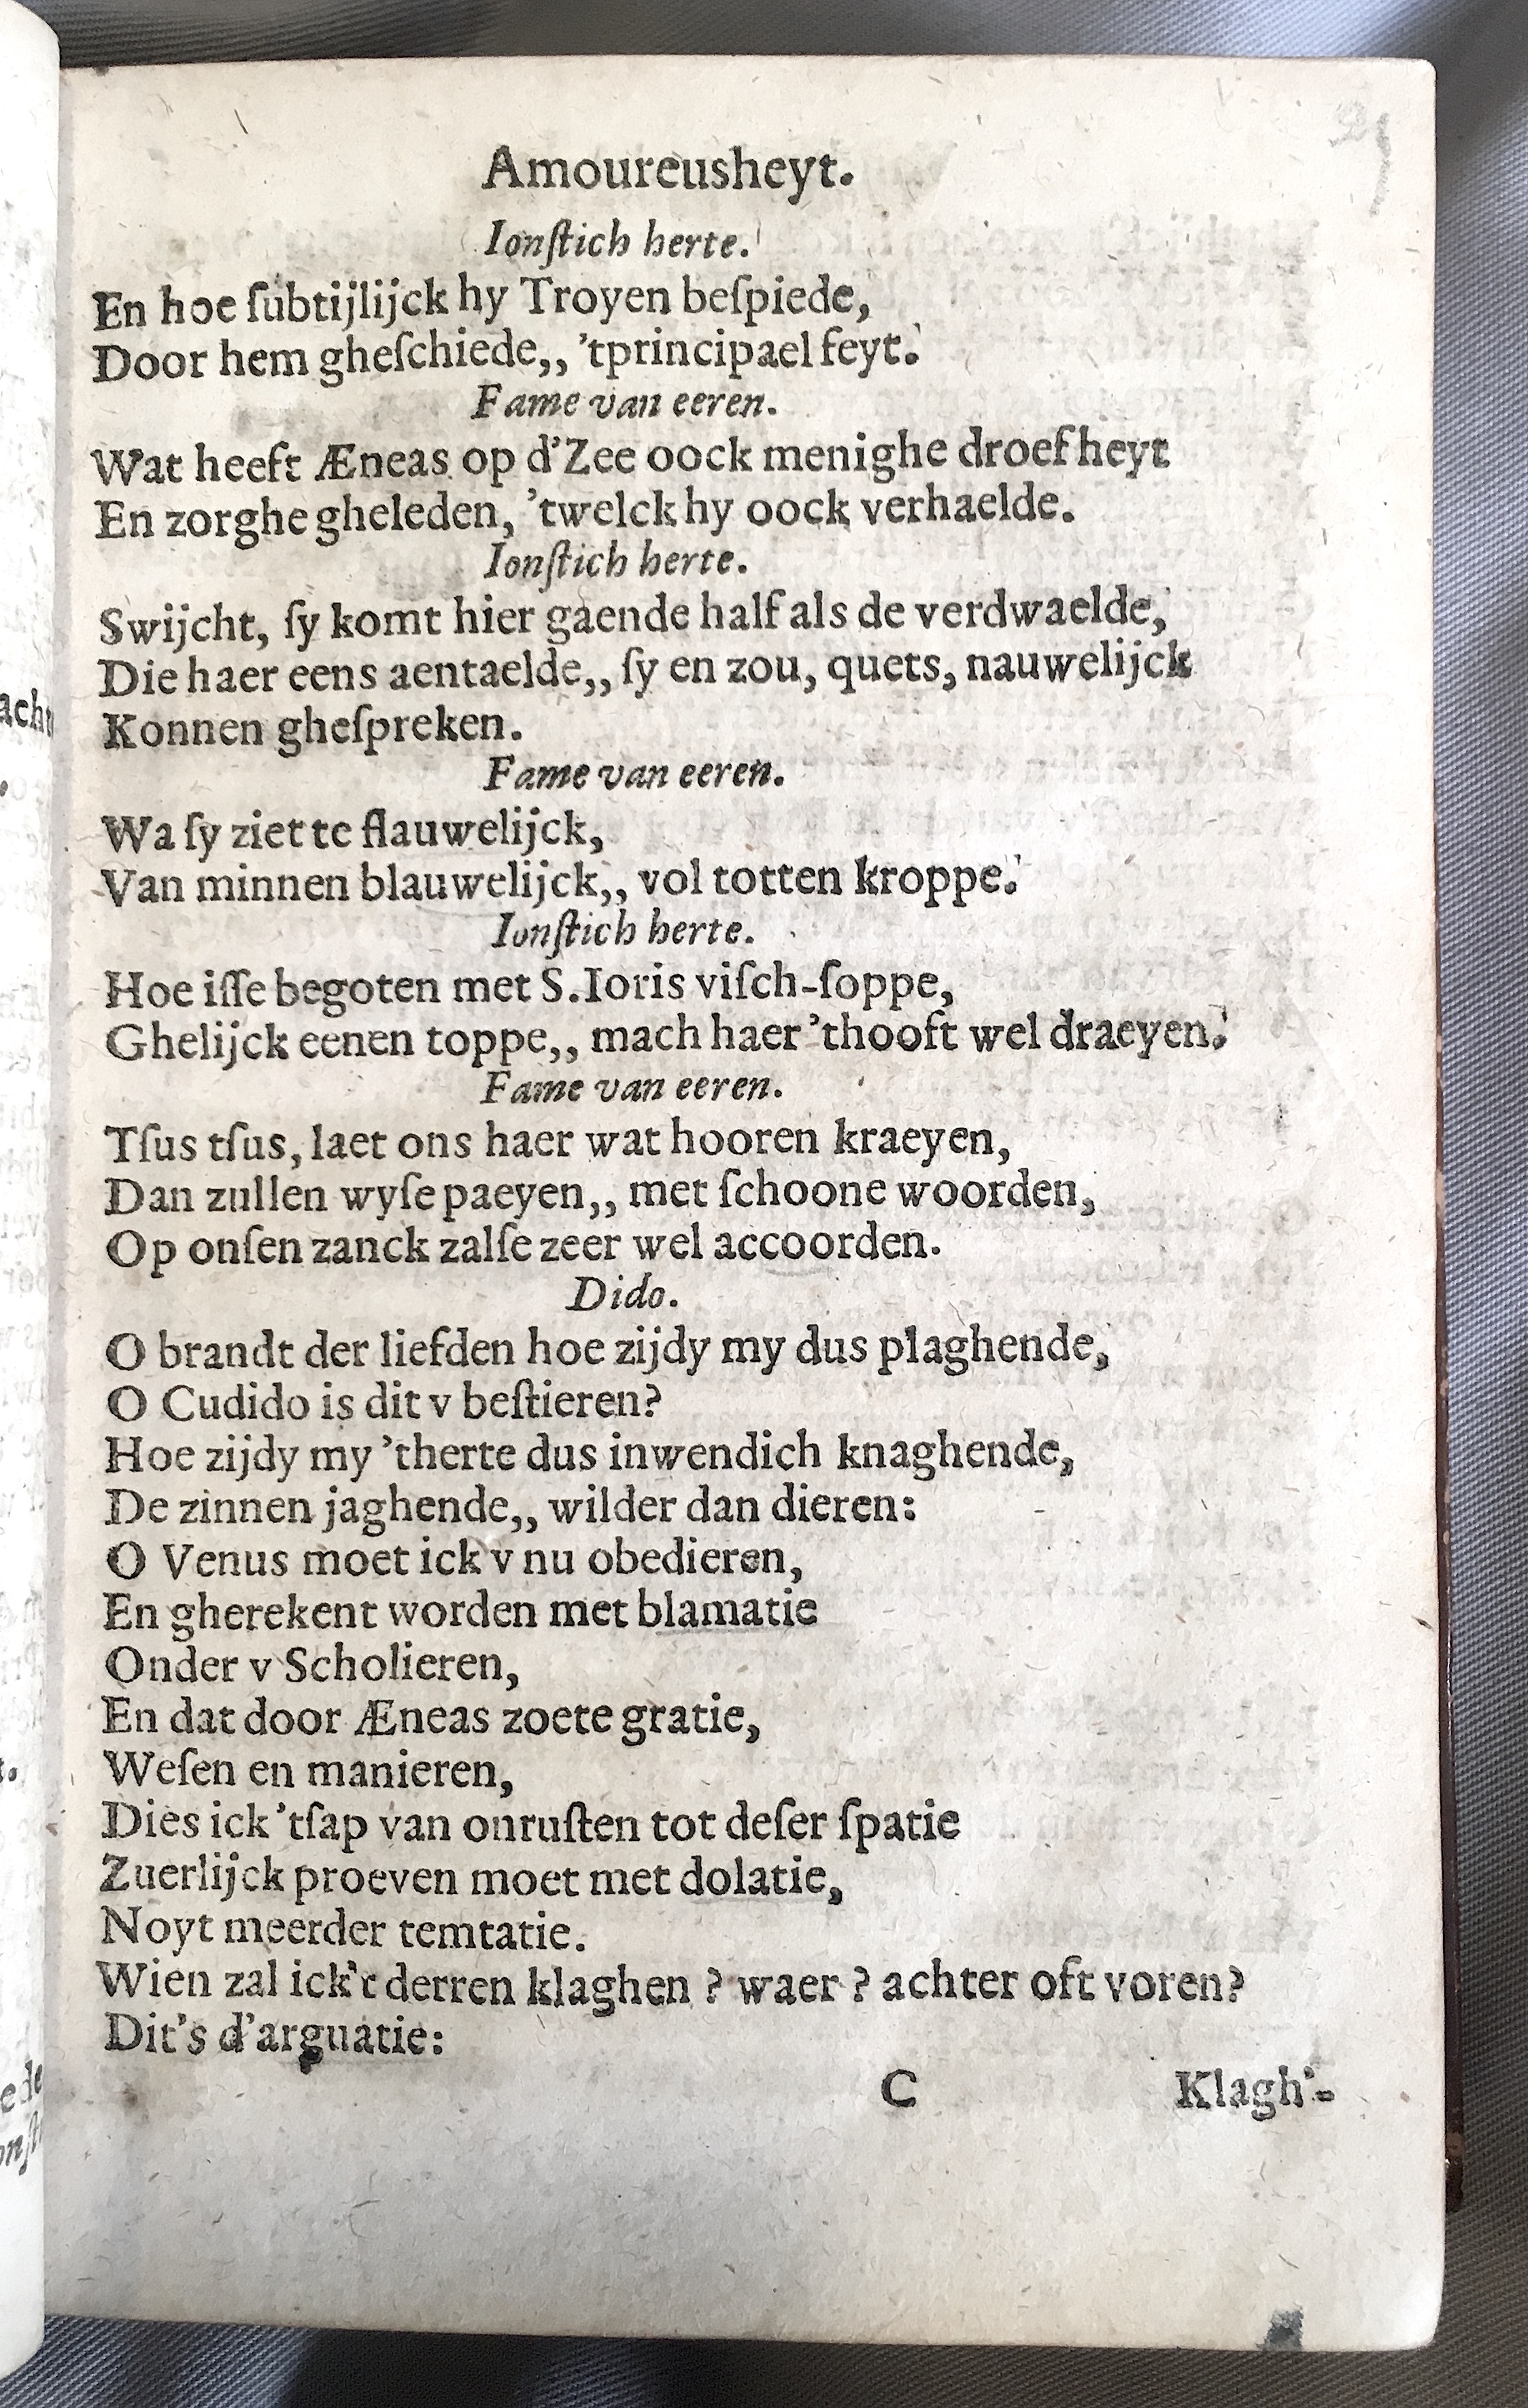 Amoureusheyt.
Ionſtich herte.
En hoe ſubtijlijck hy Troyen beſpiede,
Door hem gheſchiede,, 'tprincipael feyt.
Fame van eeren.
Wat heeft Æneas op d'Zee oock menighe droefheyt
En zorghe gheleden, 'twelck hy oock verhaelde.
Ionſtich herte.
Swijcht, ſy komt hier gaende half als de verdwaelde,
Die haer eens aentaelde,, ſy en zou, quets, nauwelijck
Konnen gheſpreken.
Fame van eeren.
Wa ſy ziet te flauwelijck,
Van minnen blauwelijck,, vol totten kroppe.
Ionſtich herte.
Hoe iſſe begoten met S. Ioris viſch-ſoppe,
Ghelijck eenen toppe,, mach haer 'thooft wel draeyen.
Fame van eeren.
Tſus tſus, laet ons haer wat hooren kraeyen,
Dan zullen wyſe paeyen,, met ſchoone woorden,
Op onſen zanck zalſe zeer wel accoorden.
Dido.
O brandt der liefden hoe zijdy my dus plaghende,
O Cudido is dit v beſtieren?
Hoe zijdy my 'therte dus inwendich knaghende,
De zinnen jaghende,, wilder dan dieren:
O Venus moet ick v nu obedieren,
En gherekent worden met blamatie
Onder v Scholieren,
En dat door Æneas zoete gratie,
Weſen en manieren,
Dies ick 'tſap van onruſten tot deſer ſpatie
Zuerlijck proeven moet met dolatie,
Noyt meerder temtatie.
Wien zal ick't derren klaghen ? waer ? achter oft voren?
Dit's d'arguatie:
C Klagh'-